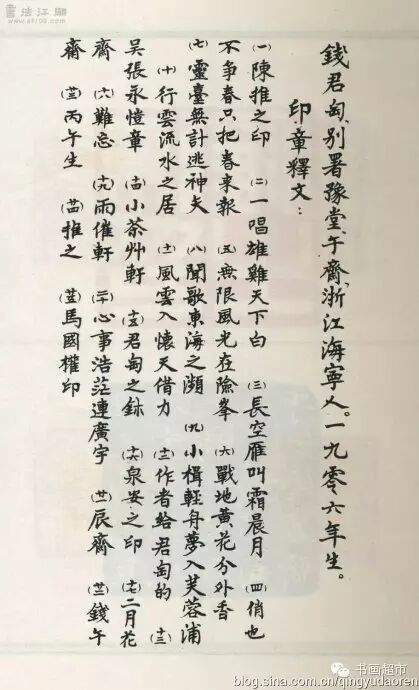 書法江湖
www.sf108.com
錢君匋,別署豫堂、午齋,浙江海寧人。一九零六年生。
印章釋文:
(一)陳推之印 (二)一唱雄雞天下白 (三)長空雁叫霜晨月 (四)俏也
不争春只把春来報 (五)無限風光在險峯 (六)戰地黄花分外香
(七)靈臺無計逃神矢 (八)聞歌東海之瀕 (九)小楫軽舟夢入芙蓉浦
(十)行雲流水之居 (十一)風雲入懷天借力 (十二)作者给君匋的 (十三)
吴張永愷章 (十四)小茶艸軒 (十五)君匋之鉥 (十六)泉安之印 (十七)二月花
齋 (十八)難忘 (十九)雨催軒 (二十)心事浩茫連廣宇 (廿一)辰齋 (廿二)錢午
齋 (廿三)丙午生 (廿四)推之 (廿五)馬國權印
书画超市
blog.sina.com.cn/qingyudaoren